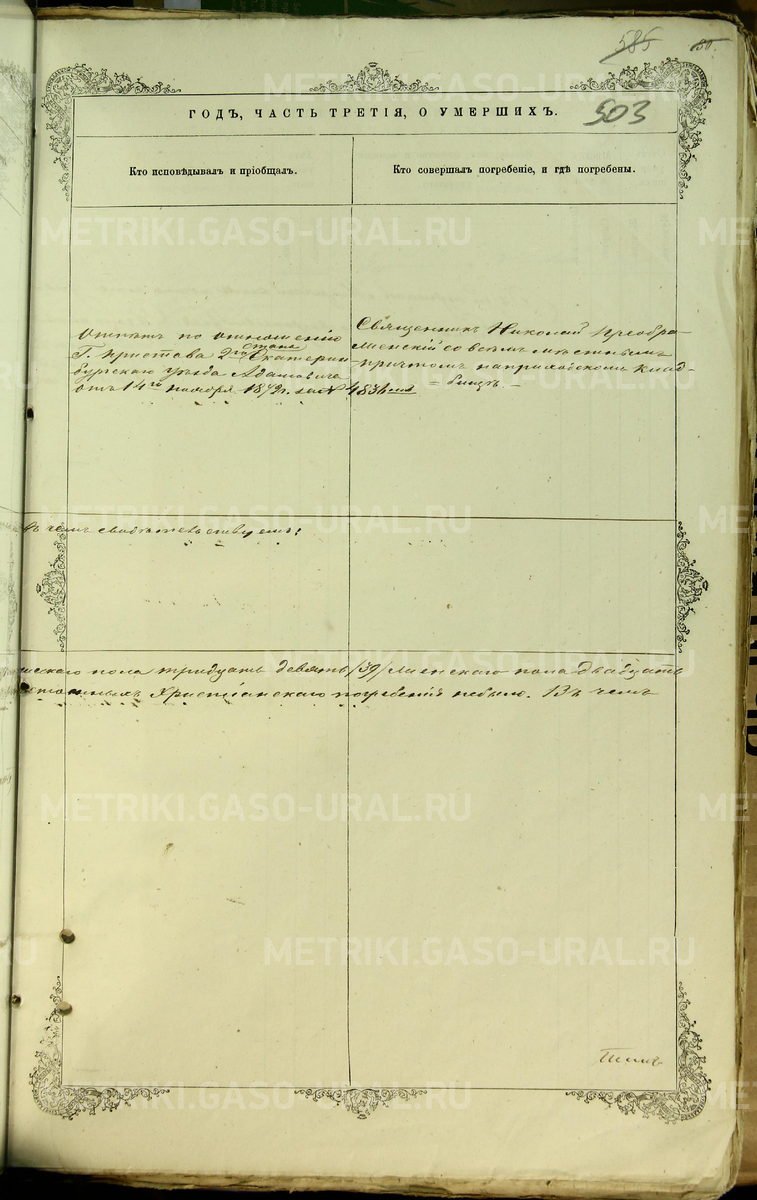 585
503
ГОДЪ, ЧАСТЬ ТРЕТІЯ, О УМЕРШИХЪ.
Кто исповѣдывалъ и пріобщалъ.
Кто совершалъ погребеніе, и гдѣ погребены.
Отпѣтъ по отношенію
Г. Пристава 2го стана Екатерин
бургскаго уѣзда Адамовича
отъ 14го ноября 1872 г. за №
4834
Священникъ Николай Преобра-
женскій со всѣмъ мѣстнымъ
причтомъ на приходскомъ клад-
бищѣ
въ чемъ свидѣтельствуемъ:
пола тридцать девять (39) женскаго пола двадцать
Христіанскаго погребенія небыло. Въ чемъ
METRIKI.GASO-URAL.RU